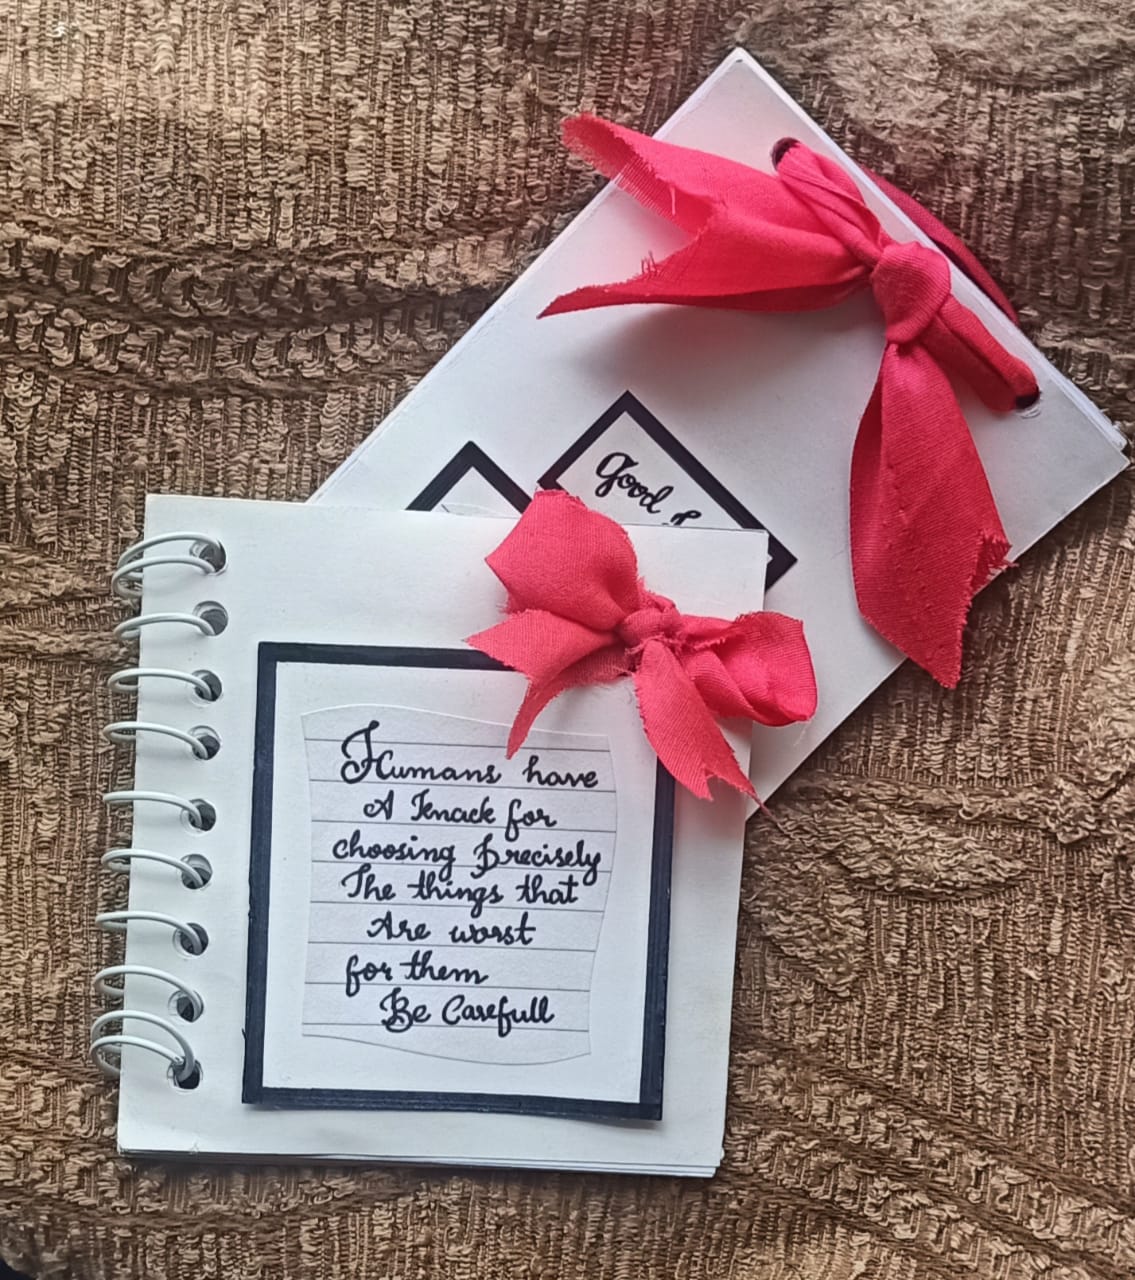 Good
Humans have
A Knack for
choosing Precisely
The things that
Are worst
for them
Be Carefull